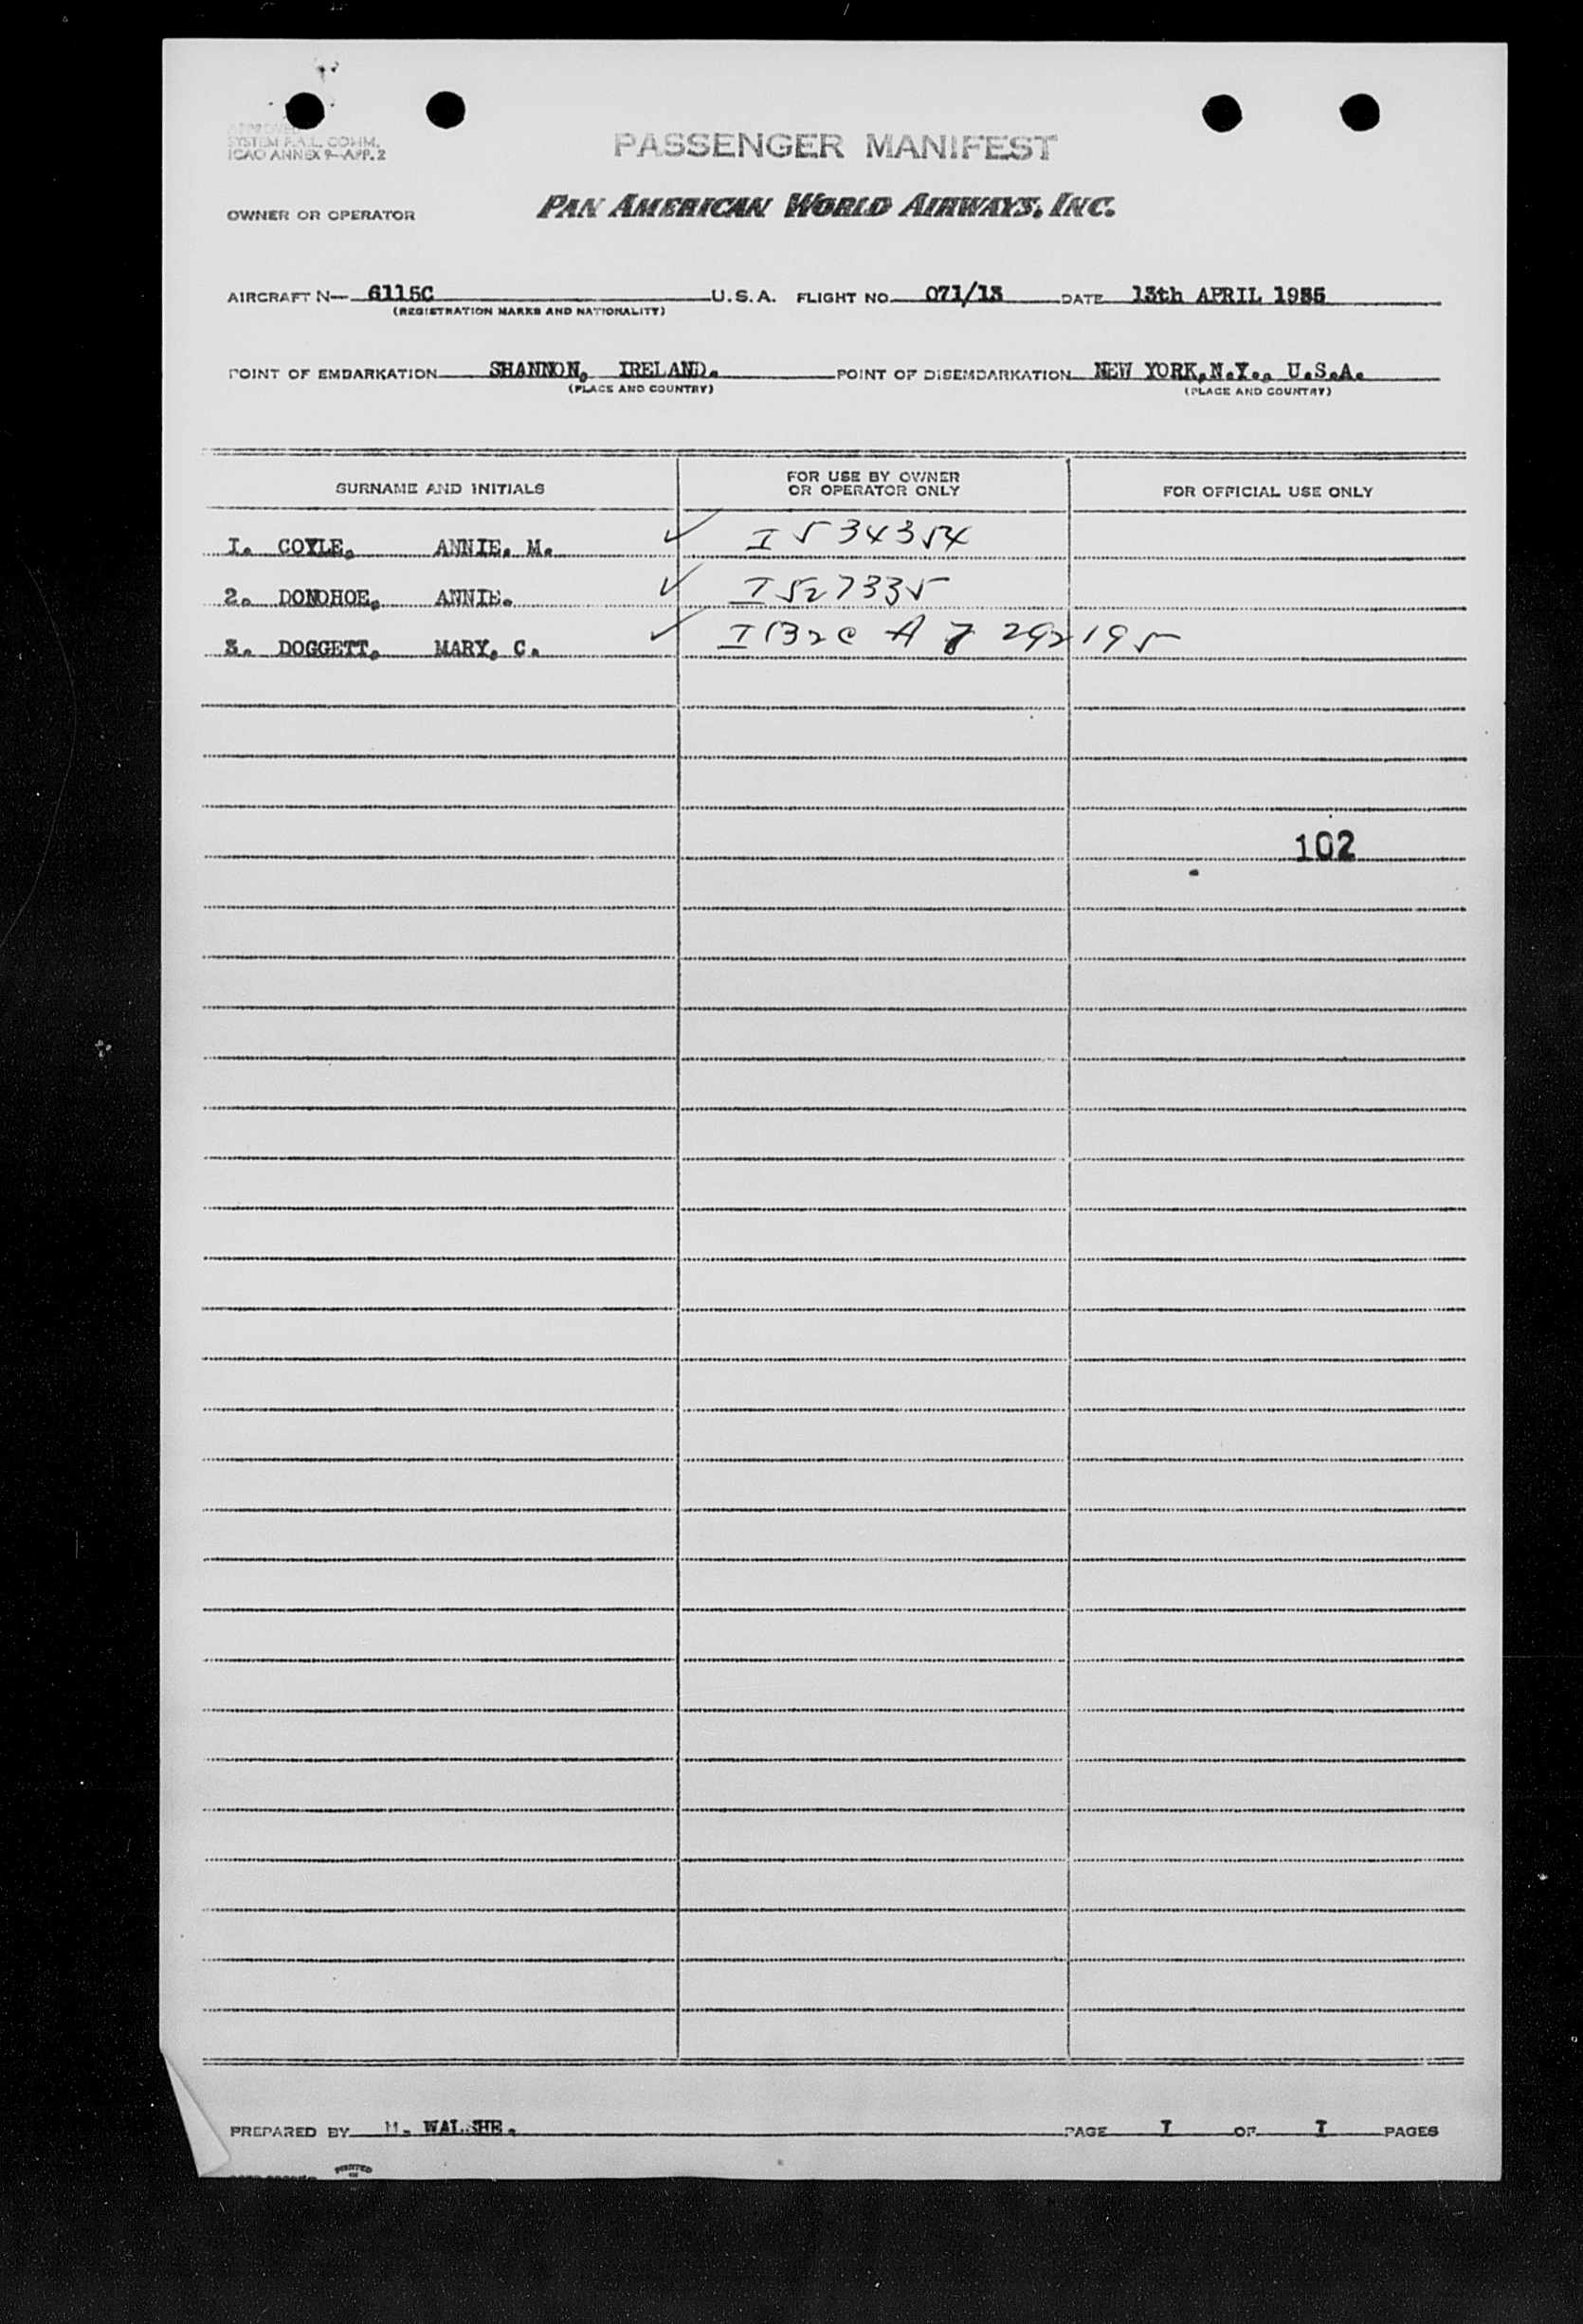 APPROVED
SYSTEM F.A.L. COMM.
ICAO ANNEX 9-APP. 2
PASSENGER MANIFEST
OWNER OR OPERATOR PAN AMERICAN WORLD AIRWAYS, INC.
AIRCRAFT N— 6115C U.S.A. FLIGHT NO. 071/13 DATE 13th APRIL 1955
(REGISTRATION MARKS AND NATIONALITY)
POINT OF EMBARKATION SHANNON, IRELAND. POINT OF DISEMBARKATION NEW YORK,N.Y., U.S.A.
(PLACE AND COUNTRY) (PLACE AND COUNTRY)
SURNAME AND INITIALS FOR USE BY OWNER OR OPERATOR ONLY FOR OFFICIAL USE ONLY
I. COYLE, ANNIE. M. ✓ I 534354
2. DONOHOE, ANNIE. ✓ I 527335
3. DOGGETT, MARY, C. ✓ I B2C A 7 292195
102
PREPARED BY M. WALSHE. PAGE I OF I PAGES
PRINTED